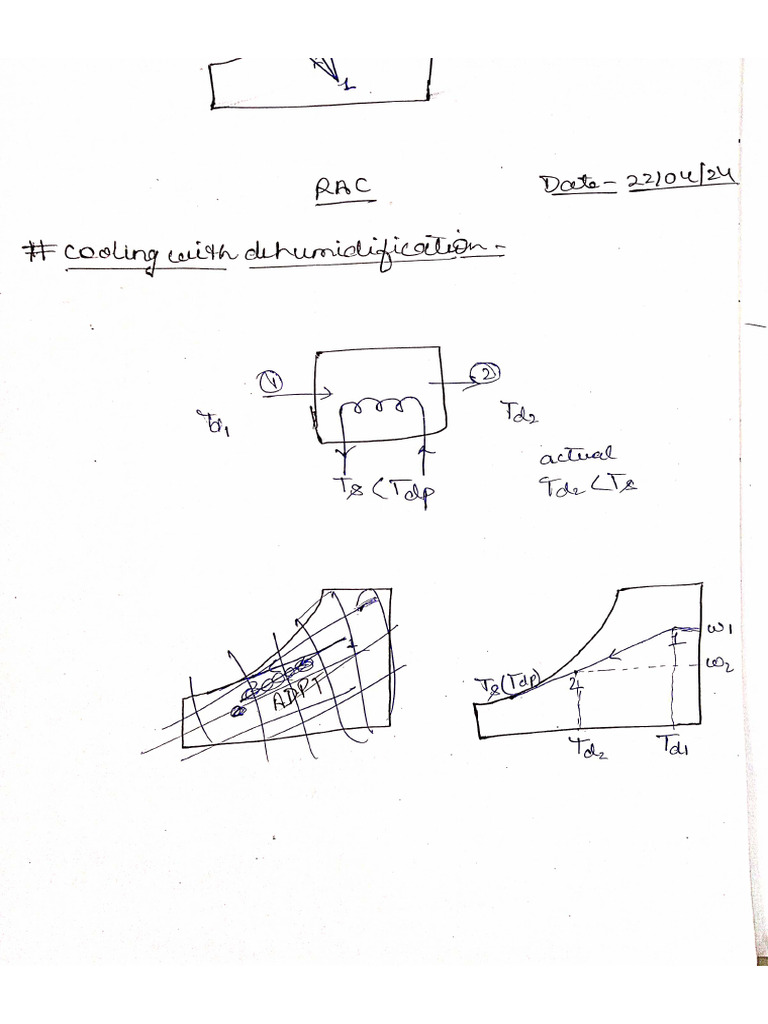 1
RAC
Date - 22/04/24
# Cooling with dehumidification -
1
2
Td1
Td2
actual
Td2 < Ts
Ts < Tdp
ADPT
1
w1
w2
Ts(Tdp)
2
Td2
Td1